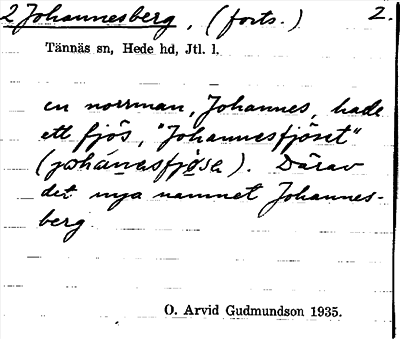 2 Johannesberg, (forts.) 2.
Tännäs sn, Hede hd, Jtl. l.
en norrman, Johannes, hade
ett fjös, "Johannesfjöset"
(johanesfjösa). Därav
det nya namnet Johannes-
berg.
O. Arvid Gudmundson 1935.